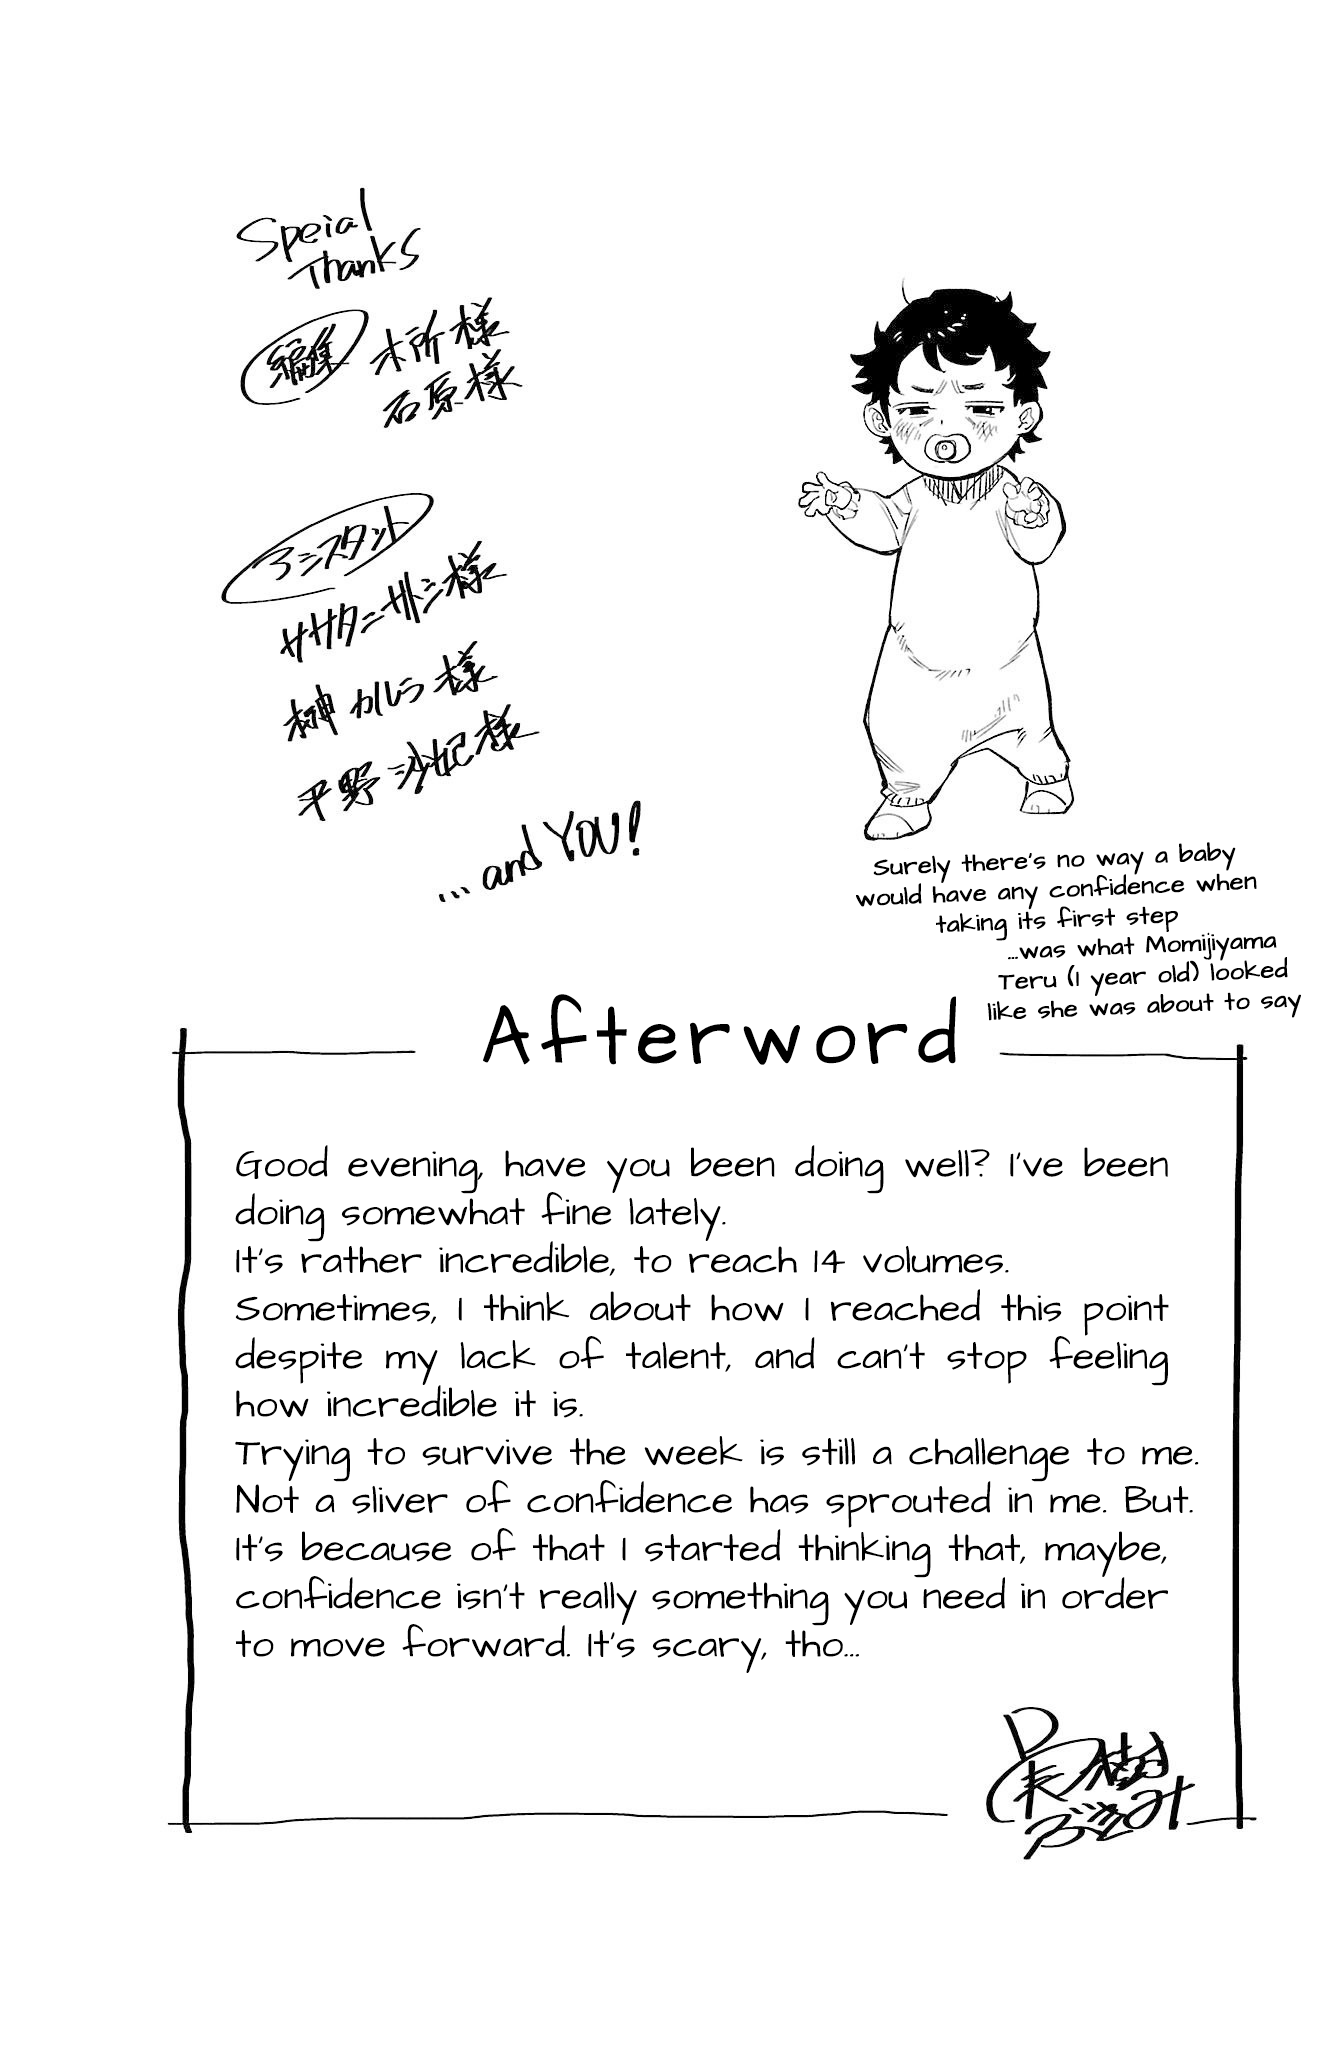 Speial
Thanks
編集 本所様
石原様
アシスタント
ササタニサトシ様
榊カルラ様
平野沙妃様
...and YOU!
Surely there's no way a baby
would have any confidence when
taking its first step
...was what Momijiyama
Teru (1 year old) looked
like she was about to say
Afterword
Good evening, have you been doing well? I've been
doing somewhat fine lately.
It's rather incredible, to reach 14 volumes.
Sometimes, I think about how I reached this point
despite my lack of talent, and can't stop feeling
how incredible it is.
Trying to survive the week is still a challenge to me.
Not a sliver of confidence has sprouted in me. But.
It's because of that I started thinking that, maybe,
confidence isn't really something you need in order
to move forward. It's scary, tho...